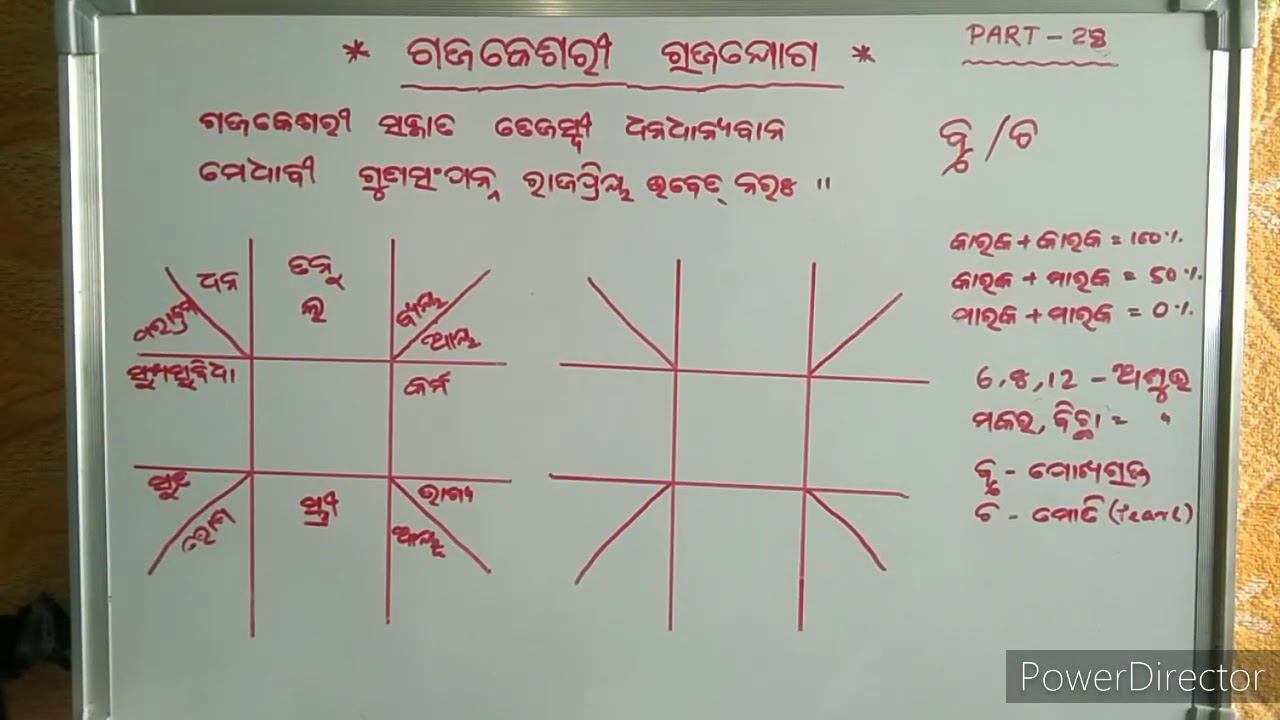 * ଗଜକେଶରୀ ରାଜଯୋଗ *
PART - 28
ଗଜକେଶରୀ ସଞ୍ଜାତ ତେଜସ୍ୱୀ ଧନଧାନ୍ୟବାନ
ମେଧାବୀ ଗୁଣସଂପନ୍ନ ରାଜପ୍ରିୟ ଭବେତ୍ ନରଃ ॥
ବୃ / ଚ
କାରକ + କାରକ = 100%
କାରକ + ମାରକ = 50%
ମାରକ + ମାରକ = 0%
6, 8, 12 - ଅଶୁଭ
ମକର, ବିଛା = "
ବୃ - ପୋଖରାଜ
ଚ - ମୋତି (Pearl)
ଧନ
ତନୁ
ଲ
ବ୍ୟୟ
ପରାକ୍ରମ
ଆୟ
ସୁଖସୁବିଧା
କର୍ମ
ସୁତ
ସ୍ତ୍ରୀ
ଭାଗ୍ୟ
ରୋଗ
ଆୟୁ
PowerDirector